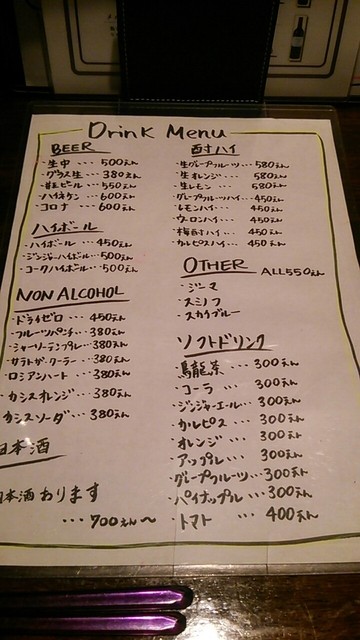 Drink Menu
BEER
・生中 ・・・ 500えん
・グラス生 ・・・ 380えん
・瓶ビール ・・・ 550えん
・ハイネケン ・・・ 600えん
・コロナ ・・・ 600えん
ハイボール
・ハイボール ・・・ 450えん
・ジンジャーハイボール ・・・ 500えん
・コークハイボール ・・・ 500えん
NON ALCOHOL
・ドライゼロ ・・・ 450えん
・フルーツパンチ ・・・ 380えん
・シャーリーテンプル ・・・ 380えん
・サラトガ・クーラー ・・・ 380えん
・ロシアンハート ・・・ 380えん
・カシスオレンジ ・・・ 380えん
・カシスソーダ ・・・ 380えん
日本酒
日本酒あります
・・・ 700えん〜
酎ハイ
・生グレープフルーツ ・・・ 580えん
・生オレンジ ・・・ 580えん
・生レモン ・・・ 580えん
・グレープフルーツハイ ・・・ 450えん
・レモンハイ ・・・ 450えん
・ウーロンハイ ・・・ 450えん
・梅酎ハイ ・・・ 450えん
・カルピスハイ ・・・ 450えん
OTHER ALL550えん
・ジーマ
・スミノフ
・スカイブルー
ソフトドリンク
・烏龍茶 ・・・ 300えん
・コーラ ・・・ 300えん
・ジンジャーエール ・・・ 300えん
・カルピス ・・・ 300えん
・オレンジ ・・・ 300えん
・アップル ・・・ 300えん
・グレープフルーツ ・・・ 300えん
・パイナップル ・・・ 300えん
・トマト ・・・ 400えん